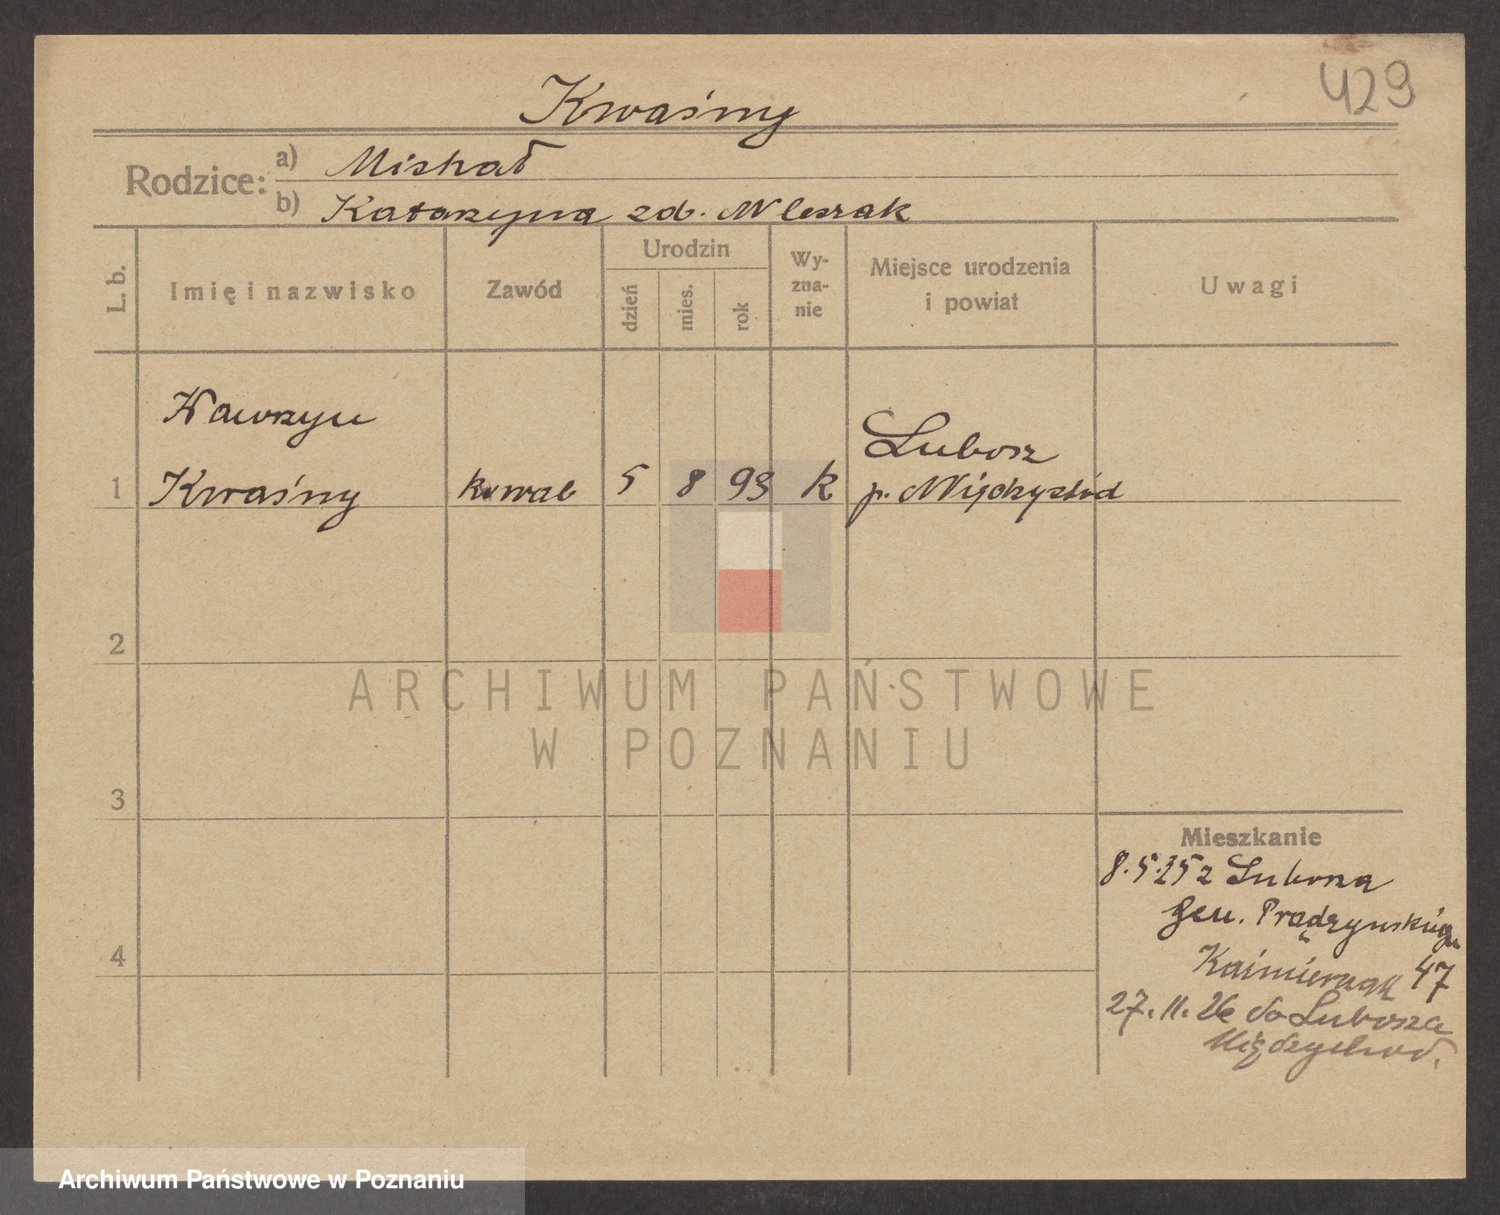 429
Kwaśny
Rodzice:
a) Michał
b) Katarzyna zd. Mleczak
L. b.
Imię i nazwisko
Zawód
Urodzin
dzień
mies.
rok
Wy-
zna-
nie
Miejsce urodzenia
i powiat
Uwagi
Wawrzyn
1 Kwaśny kowal 5 8 99 k
Lubosz
p. Międzychód
2
3
4
ARCHIWUM PAŃSTWOWE
W POZNANIU
Mieszkanie
8.5.25 z Lubosza
Gen. Prądzyńskiego
47
27.11.26 do Lubosza
Międzychod.
Archiwum Państwowe w Poznaniu